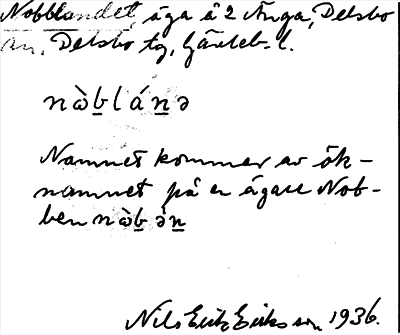 Nobblandet, äga å 2 Änga, Delsbo
sn, Delsbo tg, Gävleb. l.
nàblánə
Namnet kommer av ök-
namnet på en ägare Nob-
ben nàbən
Nils Erik Eriksson 1936.